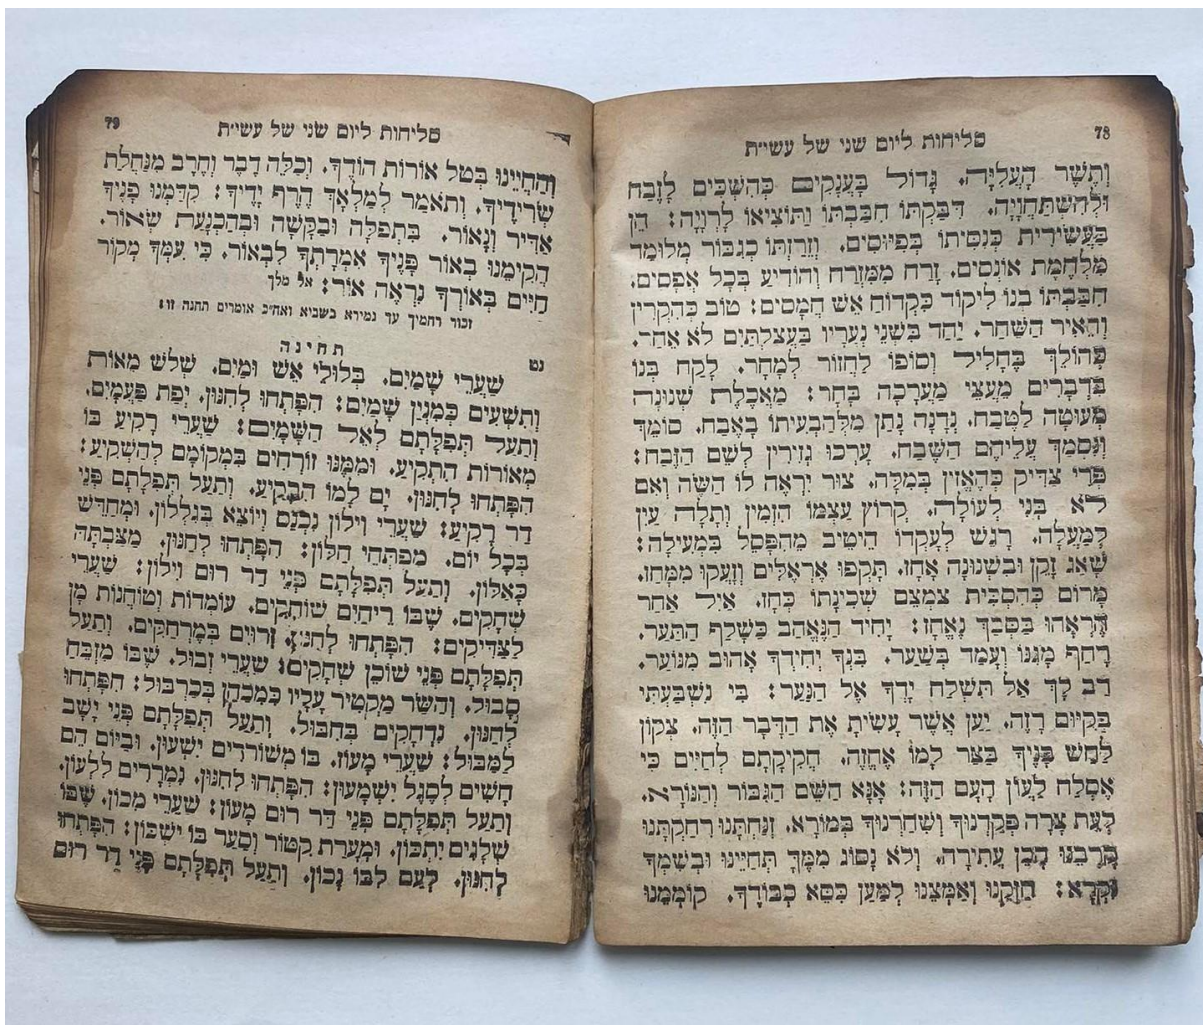 78
סליחות ליום שני של עשי״ת
וְתֶשֶׁר הָעֲלִיָּה. גָּדוֹל בָּעֲנָקִים כְּהִשְׁכִּים לָזֶבַח
וּלְהִשְׁתַּחֲוָיָה. דִּבַּקְתּוֹ חִבַּבְתּוֹ וַתּוֹצִיאוֹ לִרְוָיָה: הֵן
בַּעֲשִׂירִית כְּנִסִּיתוֹ בְּפִיּוּסִים. וְזֵרַזְתּוֹ כְגִבּוֹר מְלוּמַּד
מִלְחֶמֶת אוֹנְסִים. זָרַח מִמִּזְרָח וְהוֹדִיעַ בְּכָל אֲפָסִים.
חִבַּבְתּוֹ בְנוֹ לִיקוֹד כִּקְדוֹחַ אֵשׁ הֲמָסִים: טוֹב כְּהִקְרִין
וְהֵאִיר הַשַּׁחַר. יַחַד בִּשְׁנֵי נְעָרָיו בַּעֲצַלְתַּיִם לֹא אֵחַר.
כְּהוֹלֵךְ בֶּחָלִיל וְסוֹפוֹ לַחֲזוֹר לְמָחָר. לָקַח בְּנוֹ
בִּדְבָרִים מֵעֲצֵי מַעֲרָכָה בָּחָר: מַאֲכֶלֶת שְׁנוּנָה
מְעוּטָּה לַטֶּבַח. נְדָנָהּ נָתַן מִלְּהַבְעִיתוֹ בָּאֶבַח. סוֹמֵךְ
וְנִסְמָךְ עֲלֵיהֶם הַשֶּׁבַח. עָרְכוּ גְזִירִין לְשֵׁם הַזֶּבַח:
פְּרִי צַדִּיק כְּהַאֲזִין בְּמִלָּה. צוּר יִרְאֶה לוֹ הַשֶּׂה וְאִם
לֹא בְּנִי לְעוֹלָה. קְרוֹץ עַצְמוֹ הִזְמִין וְתָלָה עַיִן
לְמַעְלָה. רָגַשׁ לְעָקְדוֹ הֵיטִיב מֵהִפָּסֵל בִּמְעִילָה:
שָׁאַג זָקֵן וּבִשְׁנוּנָה אָחַז. תָּקְפוּ אֶרְאֶלִּים וְזָעֲקוּ מִמָּחַז.
מָרוֹם כְּהִסְכִּית צִמְצֵם שְׁכִינָתוֹ כְּחָז. אַיִל אַחַר
הֶרְאָהוּ בַּסְּבַךְ נֶאֱחָז: יָחִיד הַנֶּאֱהָב כִּשְׁלַף הַתַּעַר.
רָחַף מָגִנּוֹ וְעָמַד בְּשַׁעַר. בִּנְךָ יְחִידְךָ אָהוּב מִנּוֹעַר.
רַב לָךְ אַל תִּשְׁלַח יָדְךָ אֶל הַנָּעַר: בִּי נִשְׁבַּעְתִּי
בְּקִיּוּם רָזֶה. יַעַן אֲשֶׁר עָשִׂיתָ אֶת הַדָּבָר הַזֶּה. צְקוֹן
לַחַשׁ בָּנֶיךָ בַּצַּר לָמוֹ אֶחֱזֶה. חֲקִיקָתָם לְחַיִּים כִּי
אֶסְלַח לַעֲוֹן הָעָם הַזֶּה: אָנָּא הַשֵּׁם הַגִּבּוֹר וְהַנּוֹרָא.
לְעֵת צָרָה פְּקַדְנוּךָ וְשִׁחַרְנוּךָ בְּמוֹרָא. זְנַחְתָּנוּ רִחַקְתָּנוּ
קָרְבֵנוּ הָכֵן עֲתִירָה. וְלֹא נָסוֹג מִמֶּךָּ תְּחַיֵּינוּ וּבְשִׁמְךָ
נִקְרָא: חַזְּקֵנוּ וְאַמְּצֵנוּ לְמַעַן כִּסֵּא כְבוֹדֶךָ. קוֹמְמֵנוּ
79
סליחות ליום שני של עשי״ת
וְהַחֲיֵינוּ בְּטַל אוֹרוֹת הוֹדֶךָ. וְכַלֵּה דֶבֶר וְחֶרֶב מִנַּחֲלַת
שְׂרִידֶיךָ. וְתֹאמַר לְמַלְאָךְ הֶרֶף יָדֶיךָ: קִדַּמְנוּ פָנֶיךָ
אַדִּיר וְנָאוֹר. בִּתְפִלָּה וּבַקָּשָׁה וּבְהַכְנָעַת שְׂאוֹר.
הֲקִימֵנוּ בְאוֹר פָּנֶיךָ אִמְרָתְךָ לִבְאוֹר. כִּי עִמְּךָ מְקוֹר
חַיִּים בְּאוֹרְךָ נִרְאֶה אוֹר: אל מלך
זכור רחמיך עד גמירא כשביא ואח״כ אומרים תחנה זו:
תחינה
נט שַׁעֲרֵי שָׁמַיִם. בְּלוּלֵי אֵשׁ וּמַיִם. שְׁלֹשׁ מֵאוֹת
וְתִשְׁעִים כְּמִנְיַן שָׁמַיִם: הִפָּתְחוּ לְחִנּוּן. יְפַת פְּעָמַיִם.
וְתַעַל תְּפִלָּתָם לְאֵל הַשָּׁמָיִם: שַׁעֲרֵי רָקִיעַ בּוֹ
מְאוֹרוֹת הִתְקִיעַ. וּמִמֶּנּוּ זוֹרְחִים בִּמְקוֹמָם לְהַשְׁקִיעַ:
הִפָּתְחוּ לְחִנּוּן. יָם לָמוֹ הִבְקִיעַ. וְתַעַל תְּפִלָּתָם פְּנֵי
דַר רָקִיעַ: שַׁעֲרֵי וִילוֹן נִכְנָס וְיוֹצֵא בְּגִלָּלוֹן. וּמְחַדֵּשׁ
בְּכָל יוֹם. מִפִּתְחֵי חַלּוֹן: הִפָּתְחוּ לְחִנּוּן. מַצַּבְתָּהּ
כָּאַלּוֹן. וְתַעַל תְּפִלָּתָם פְּנֵי דַר רוּם וִילוֹן: שַׁעֲרֵי
שְׁחָקִים. שֶׁבּוֹ רֵיחַיִם שׁוֹתְקִים. עוֹמְדוֹת וְטוֹחֲנוֹת מָן
לַצַּדִּיקִים: הִפָּתְחוּ לְחִנּוּן. זְרוּיִם בְּמֶרְחַקִּים. וְתַעַל
תְּפִלָּתָם פְּנֵי שׁוֹכֵן שְׁחָקִים: שַׁעֲרֵי זְבוּל. שֶׁבּוֹ מִזְבֵּחַ
סָבוּל. וְהַשַּׂר מַקְטִיר עָלָיו כִּמְכַהֵן בְּכַרְבּוּל: הִפָּתְחוּ
לְחִנּוּן. נִדְחָקִים בְּחִבּוּל. וְתַעַל תְּפִלָּתָם פְּנֵי יָשַׁב
לַמַּבּוּל: שַׁעֲרֵי מָעוֹז. בּוֹ מְשׁוֹרְרִים יִשְׁעוּן. וּבַיּוֹם הֵם
חָשִׁים לְסֶגֶל יִשְׁמָעוּן: הִפָּתְחוּ לְחִנּוּן. נִמְרָרִים לְלַעוֹן.
וְתַעַל תְּפִלָּתָם פְּנֵי דַר רוּם מָעוֹן: שַׁעֲרֵי מָכוֹן. שֶׁפּוֹ
שְׁלָגִים יִתְכּוֹן. וּמְעָרַת קִטּוֹר וְסַעַר בּוֹ יִשְׁכּוֹן: הִפָּתְחוּ
לְחִנּוּן. לְעַם לִבּוֹ נָכוֹן. וְתַעַל תְּפִלָּתָם פְּנֵי דַר רוּם